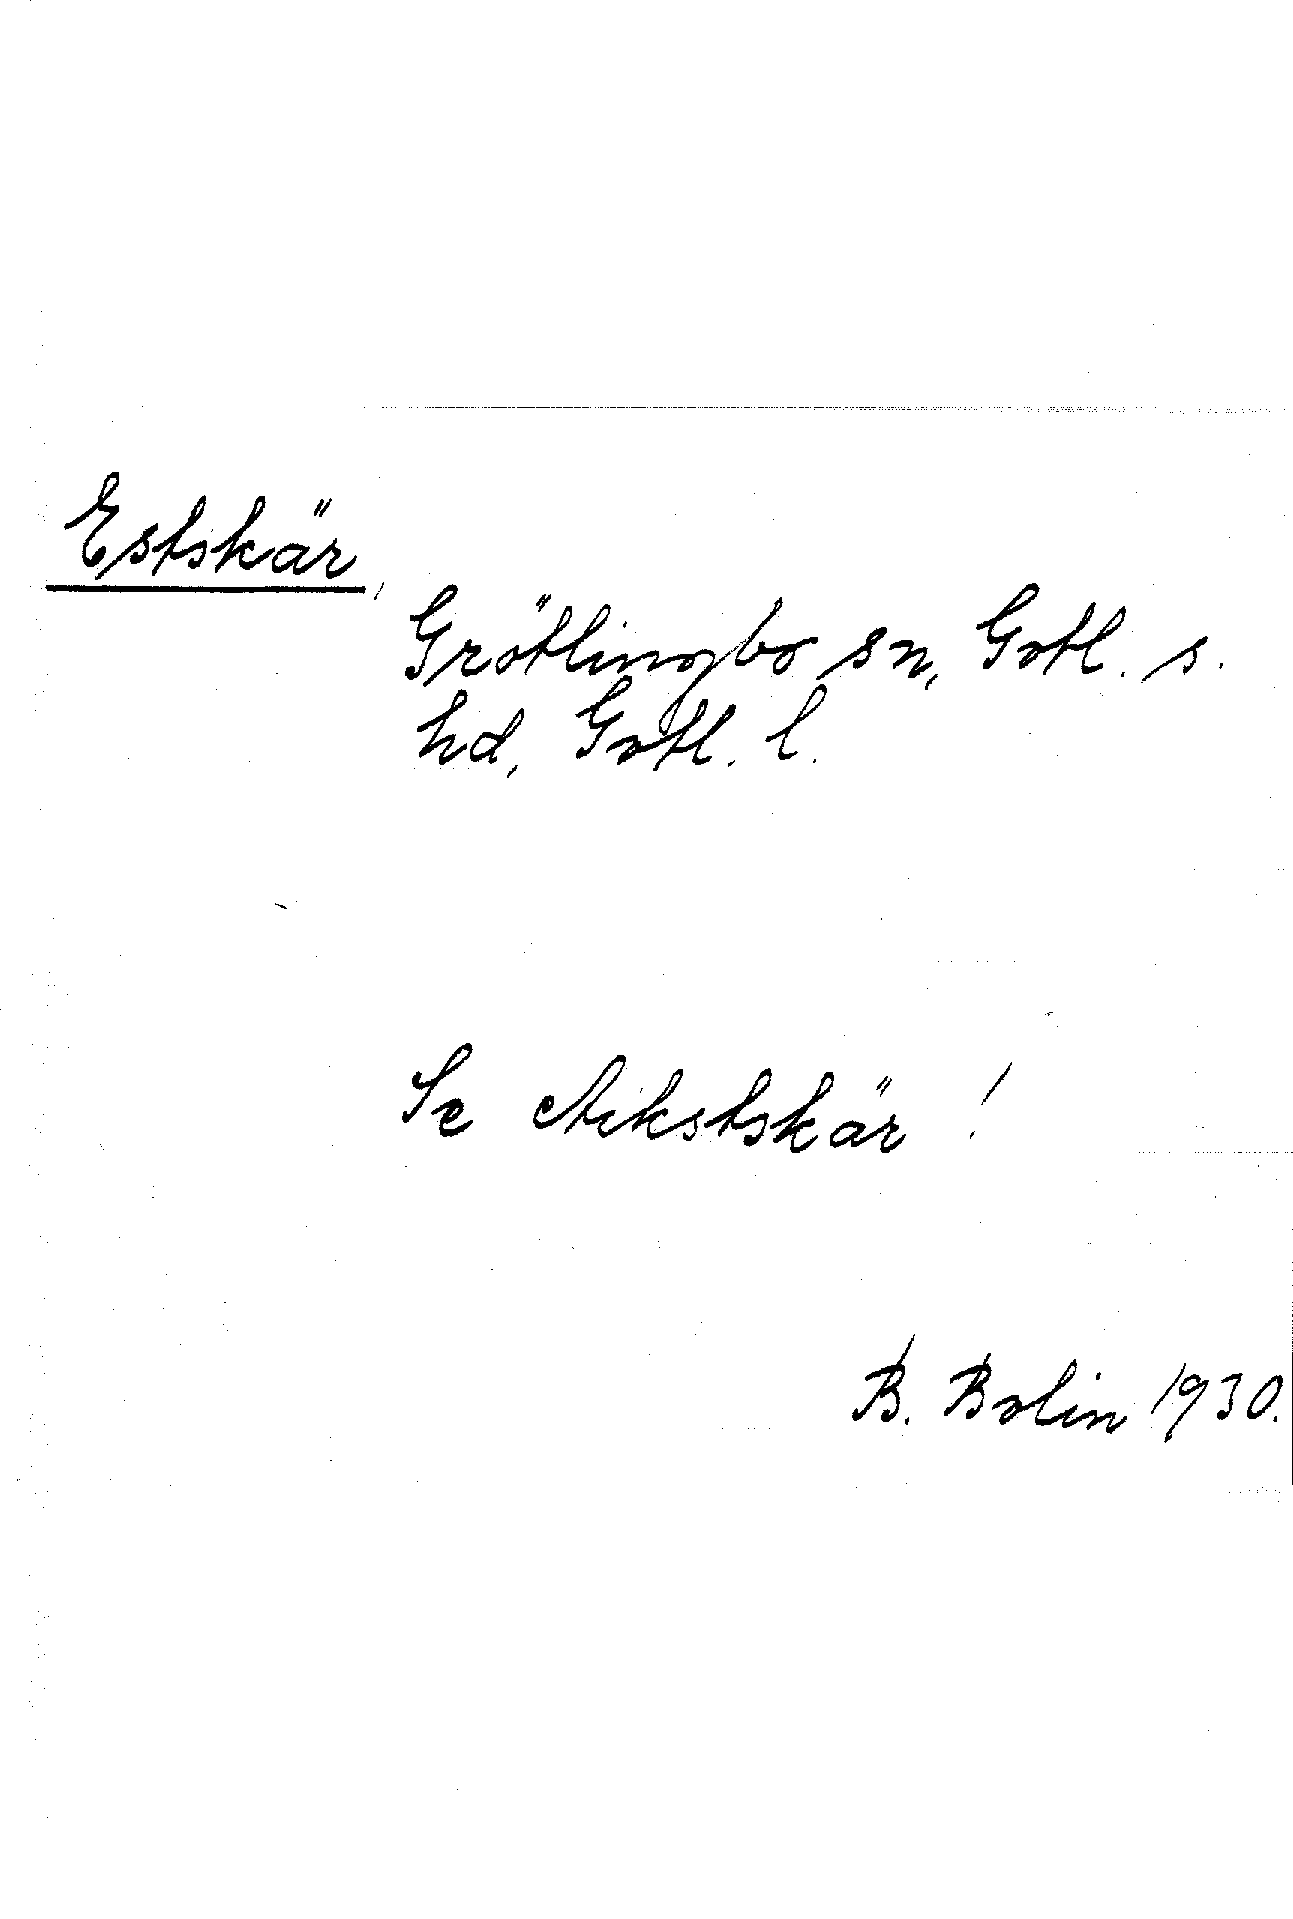 Estskär,
Grötlingbo sn, Gotl. s.
hd, Gotl. l.
Se Aikstskär!
B. Bolin 1930.